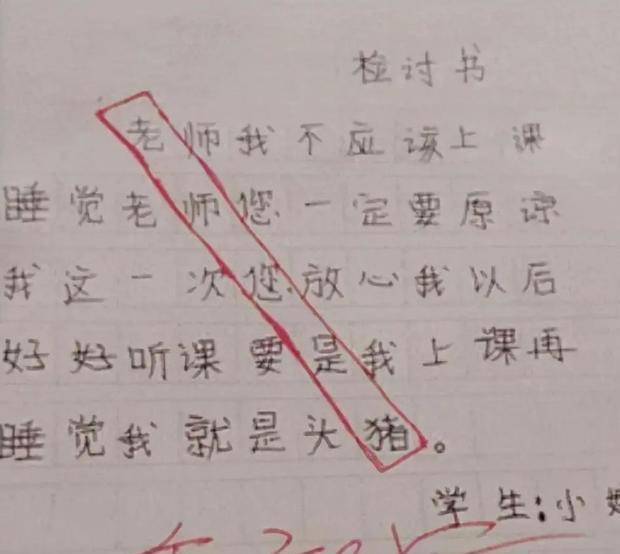 检讨书
老师我不应该上课
睡觉老师您一定要原谅
我这一次您放心我以后
好好听课要是我上课再
睡觉我就是头猪。
学生:小